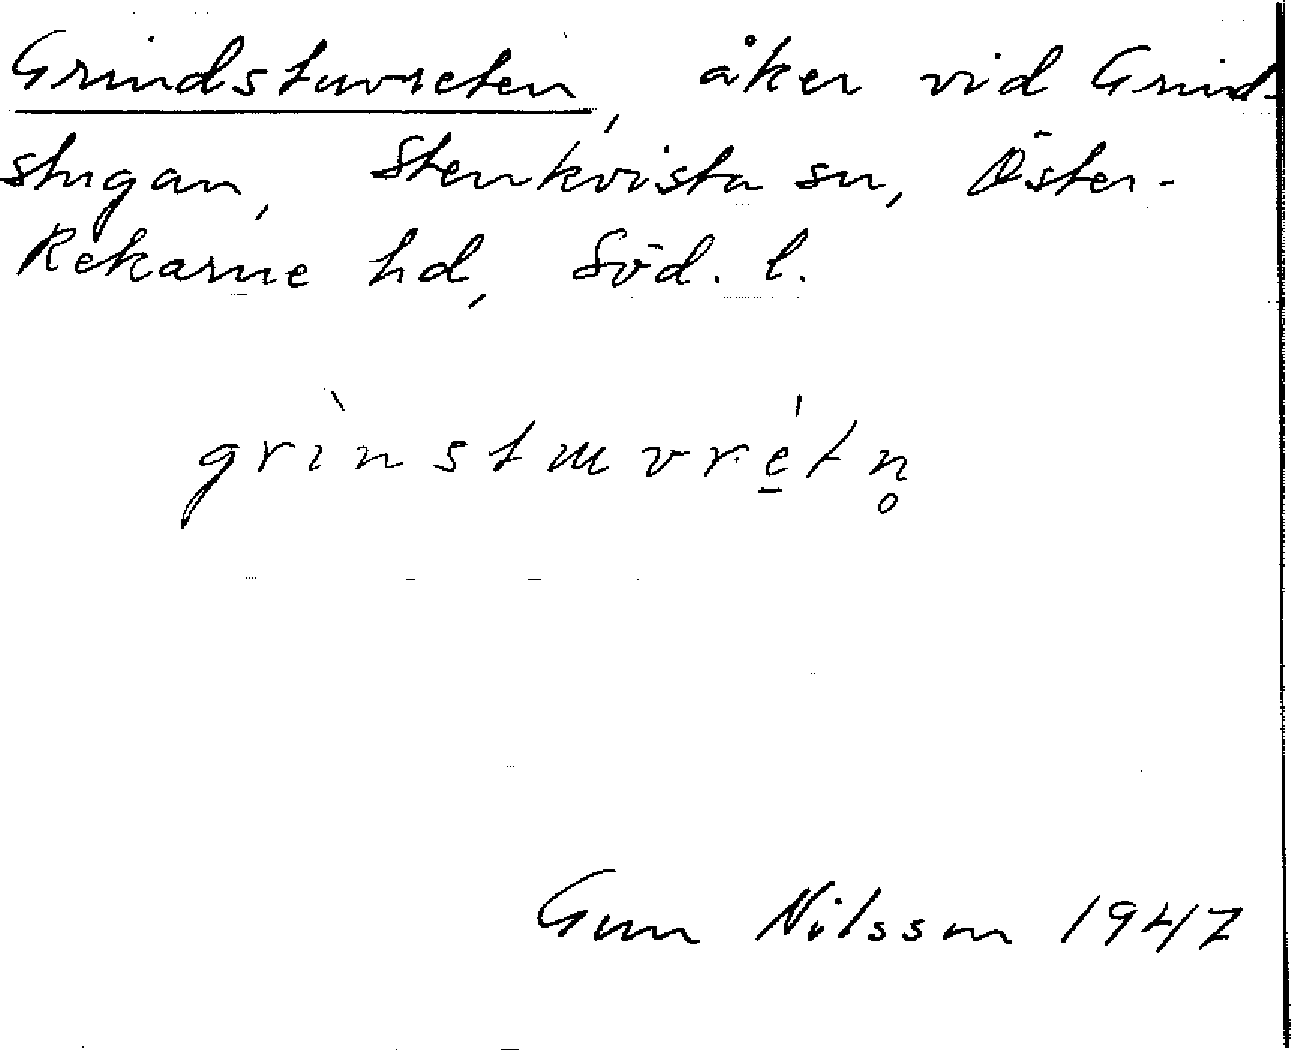 Grindstuvreten, åker vid Grind-
stugan, Stenkvista sn, Öster-
Rekarne hd, Söd. l.
grìnstɯvré̱tn̥
Gun Nilsson 1947